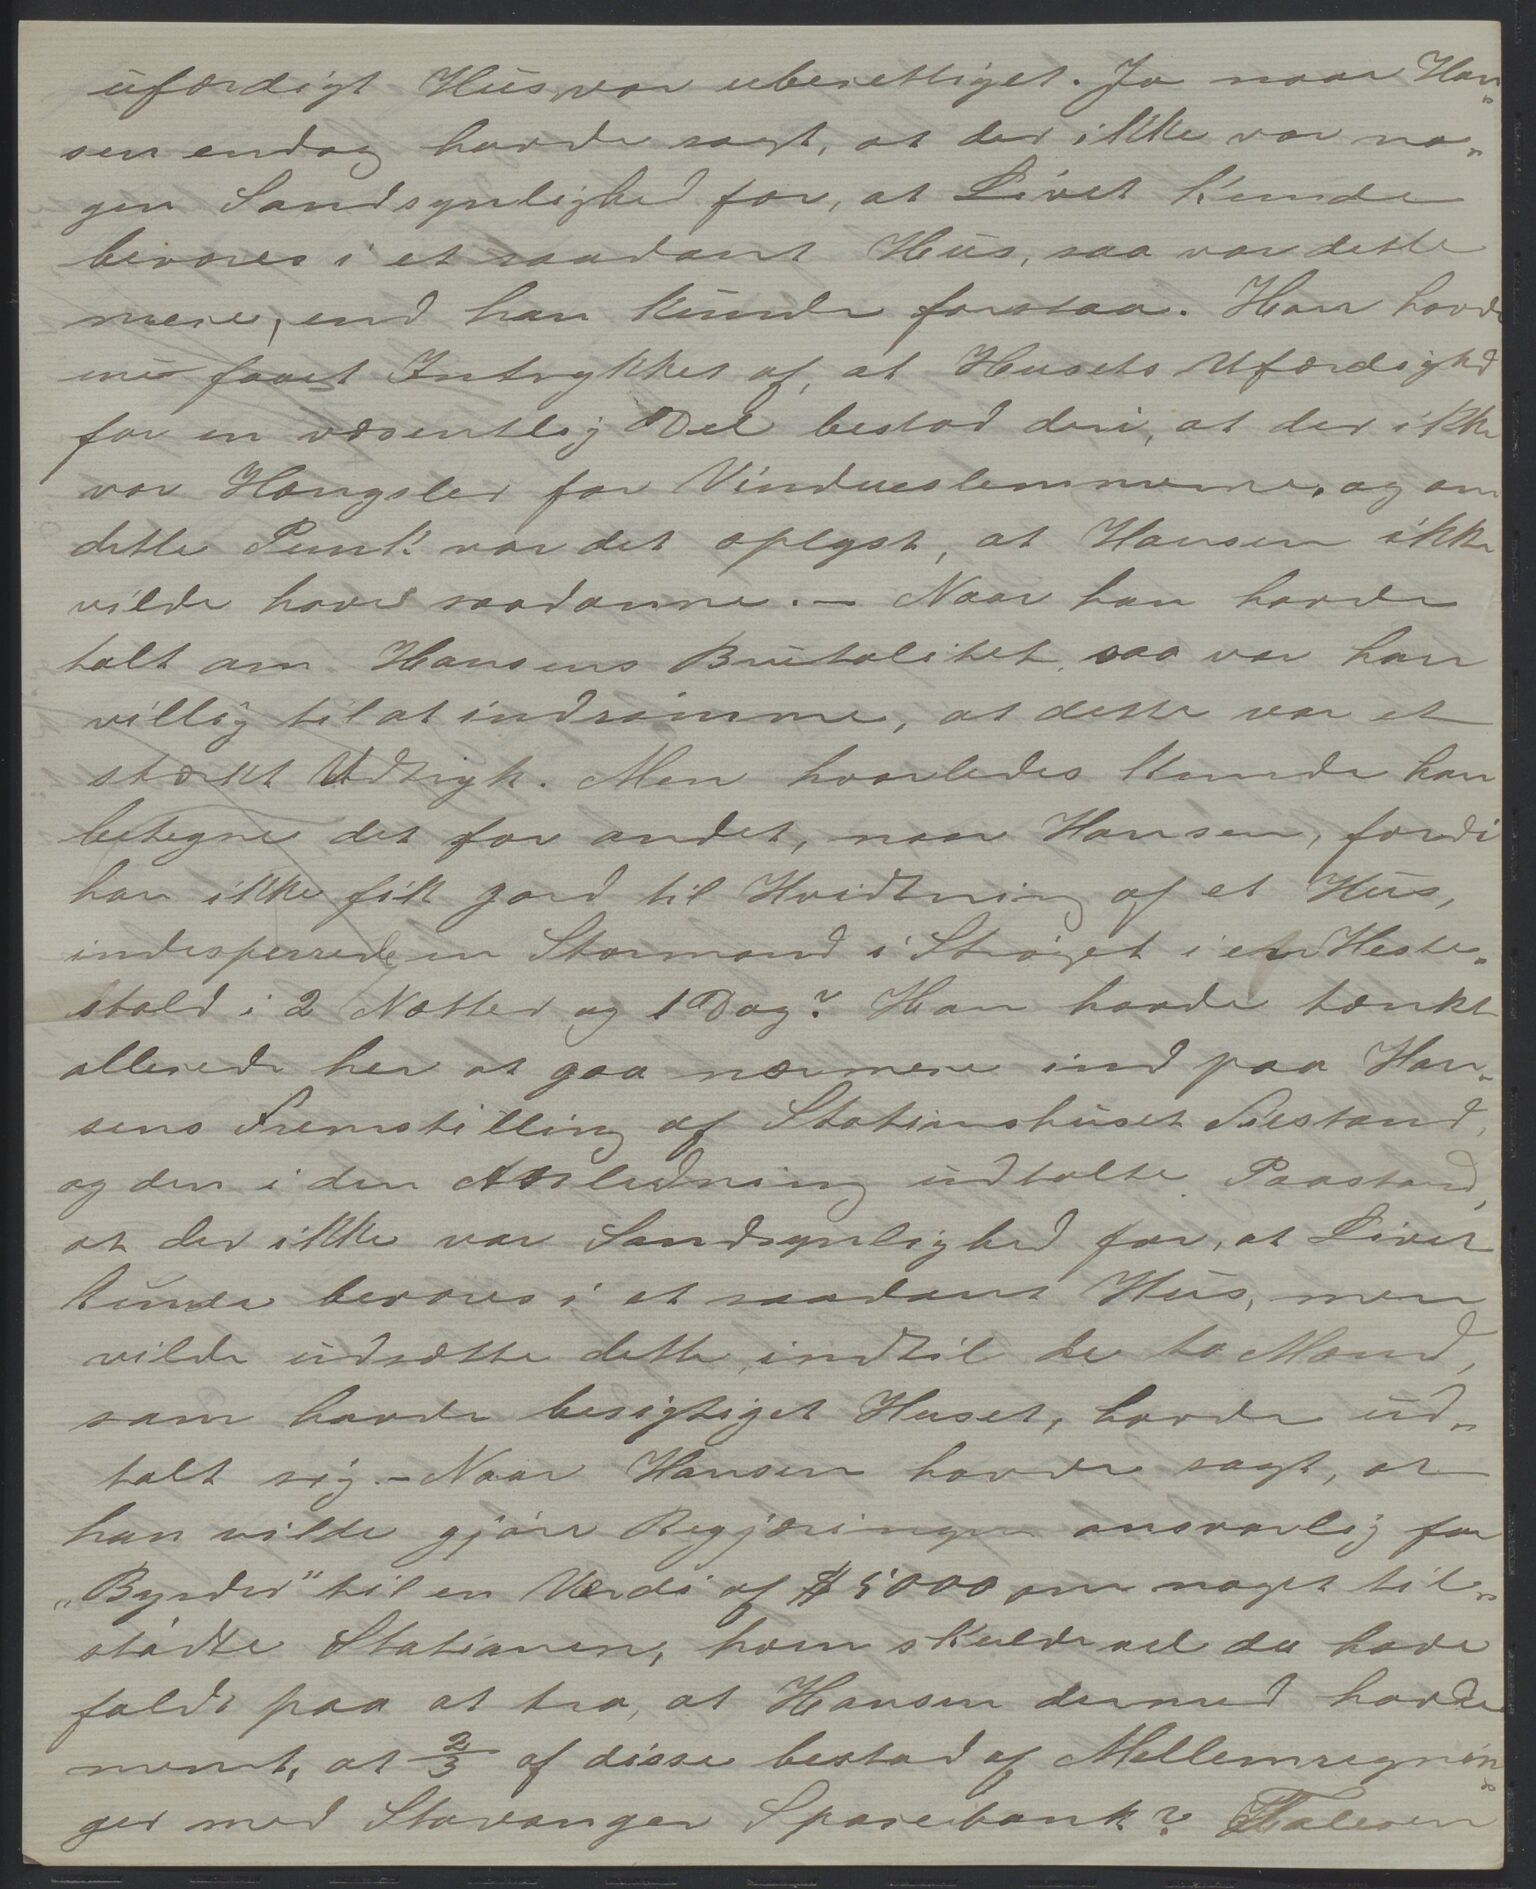 ufærdigt Hus, var uberettiget. Ja naar Han„
sen endog havde sagt, at der ikke var no„
gen Sandsynlighed for, at Livet kunde
bevares i et saadant Hus, saa var dette
mere, end han kunde forstaa. Han havde
nu faaet Indtrykket af, at Husets Ufærdighed
for en væsentlig Del bestod deri, at der ikke
var Hængsler for Vindueslemmerne, og om
dette Punkt var det oplyst, at Hansen ikke
vilde have saadanne. – Naar han havde
talt om Hansens Brutalitet, saa var han
villig til at indrømme, at dette var et
stærkt Udtryk. Men hvorledes kunde han
betegne det for andet, naar Hansen, fordi
han ikke fik Jord til Hvidtning af et Hus,
indesperrede en Stormand i Strøget i en Heste„
stald i 2 Nætter og 1 Dag? Han havde tænkt
allerede her at gaa nærmere ind paa Han„
sens Fremstilling af Stationshuset Tilstand,
og den i den Anledning udtalte Paastand,
at der ikke var Sandsynlighed for, at Livet
kunde bevares i et saadant Hus, men
vilde udsætte dette, indtil de to Mænd,
som havde besigtiget Huset, havde ud„
talt sig. – Naar Hansen havde sagt, at
han vilde gjøre Regjæringen ansvarlig for
„Byrder" til en Værdi af $ 5000 om noget til„
stødte Stationen, hvem skulde vel da have
faldt paa at tro, at Hansen dermed havde
ment, at 2/3 af disse bestod af Mellemregnin„
ger med Stavanger Sparebank? Taleren